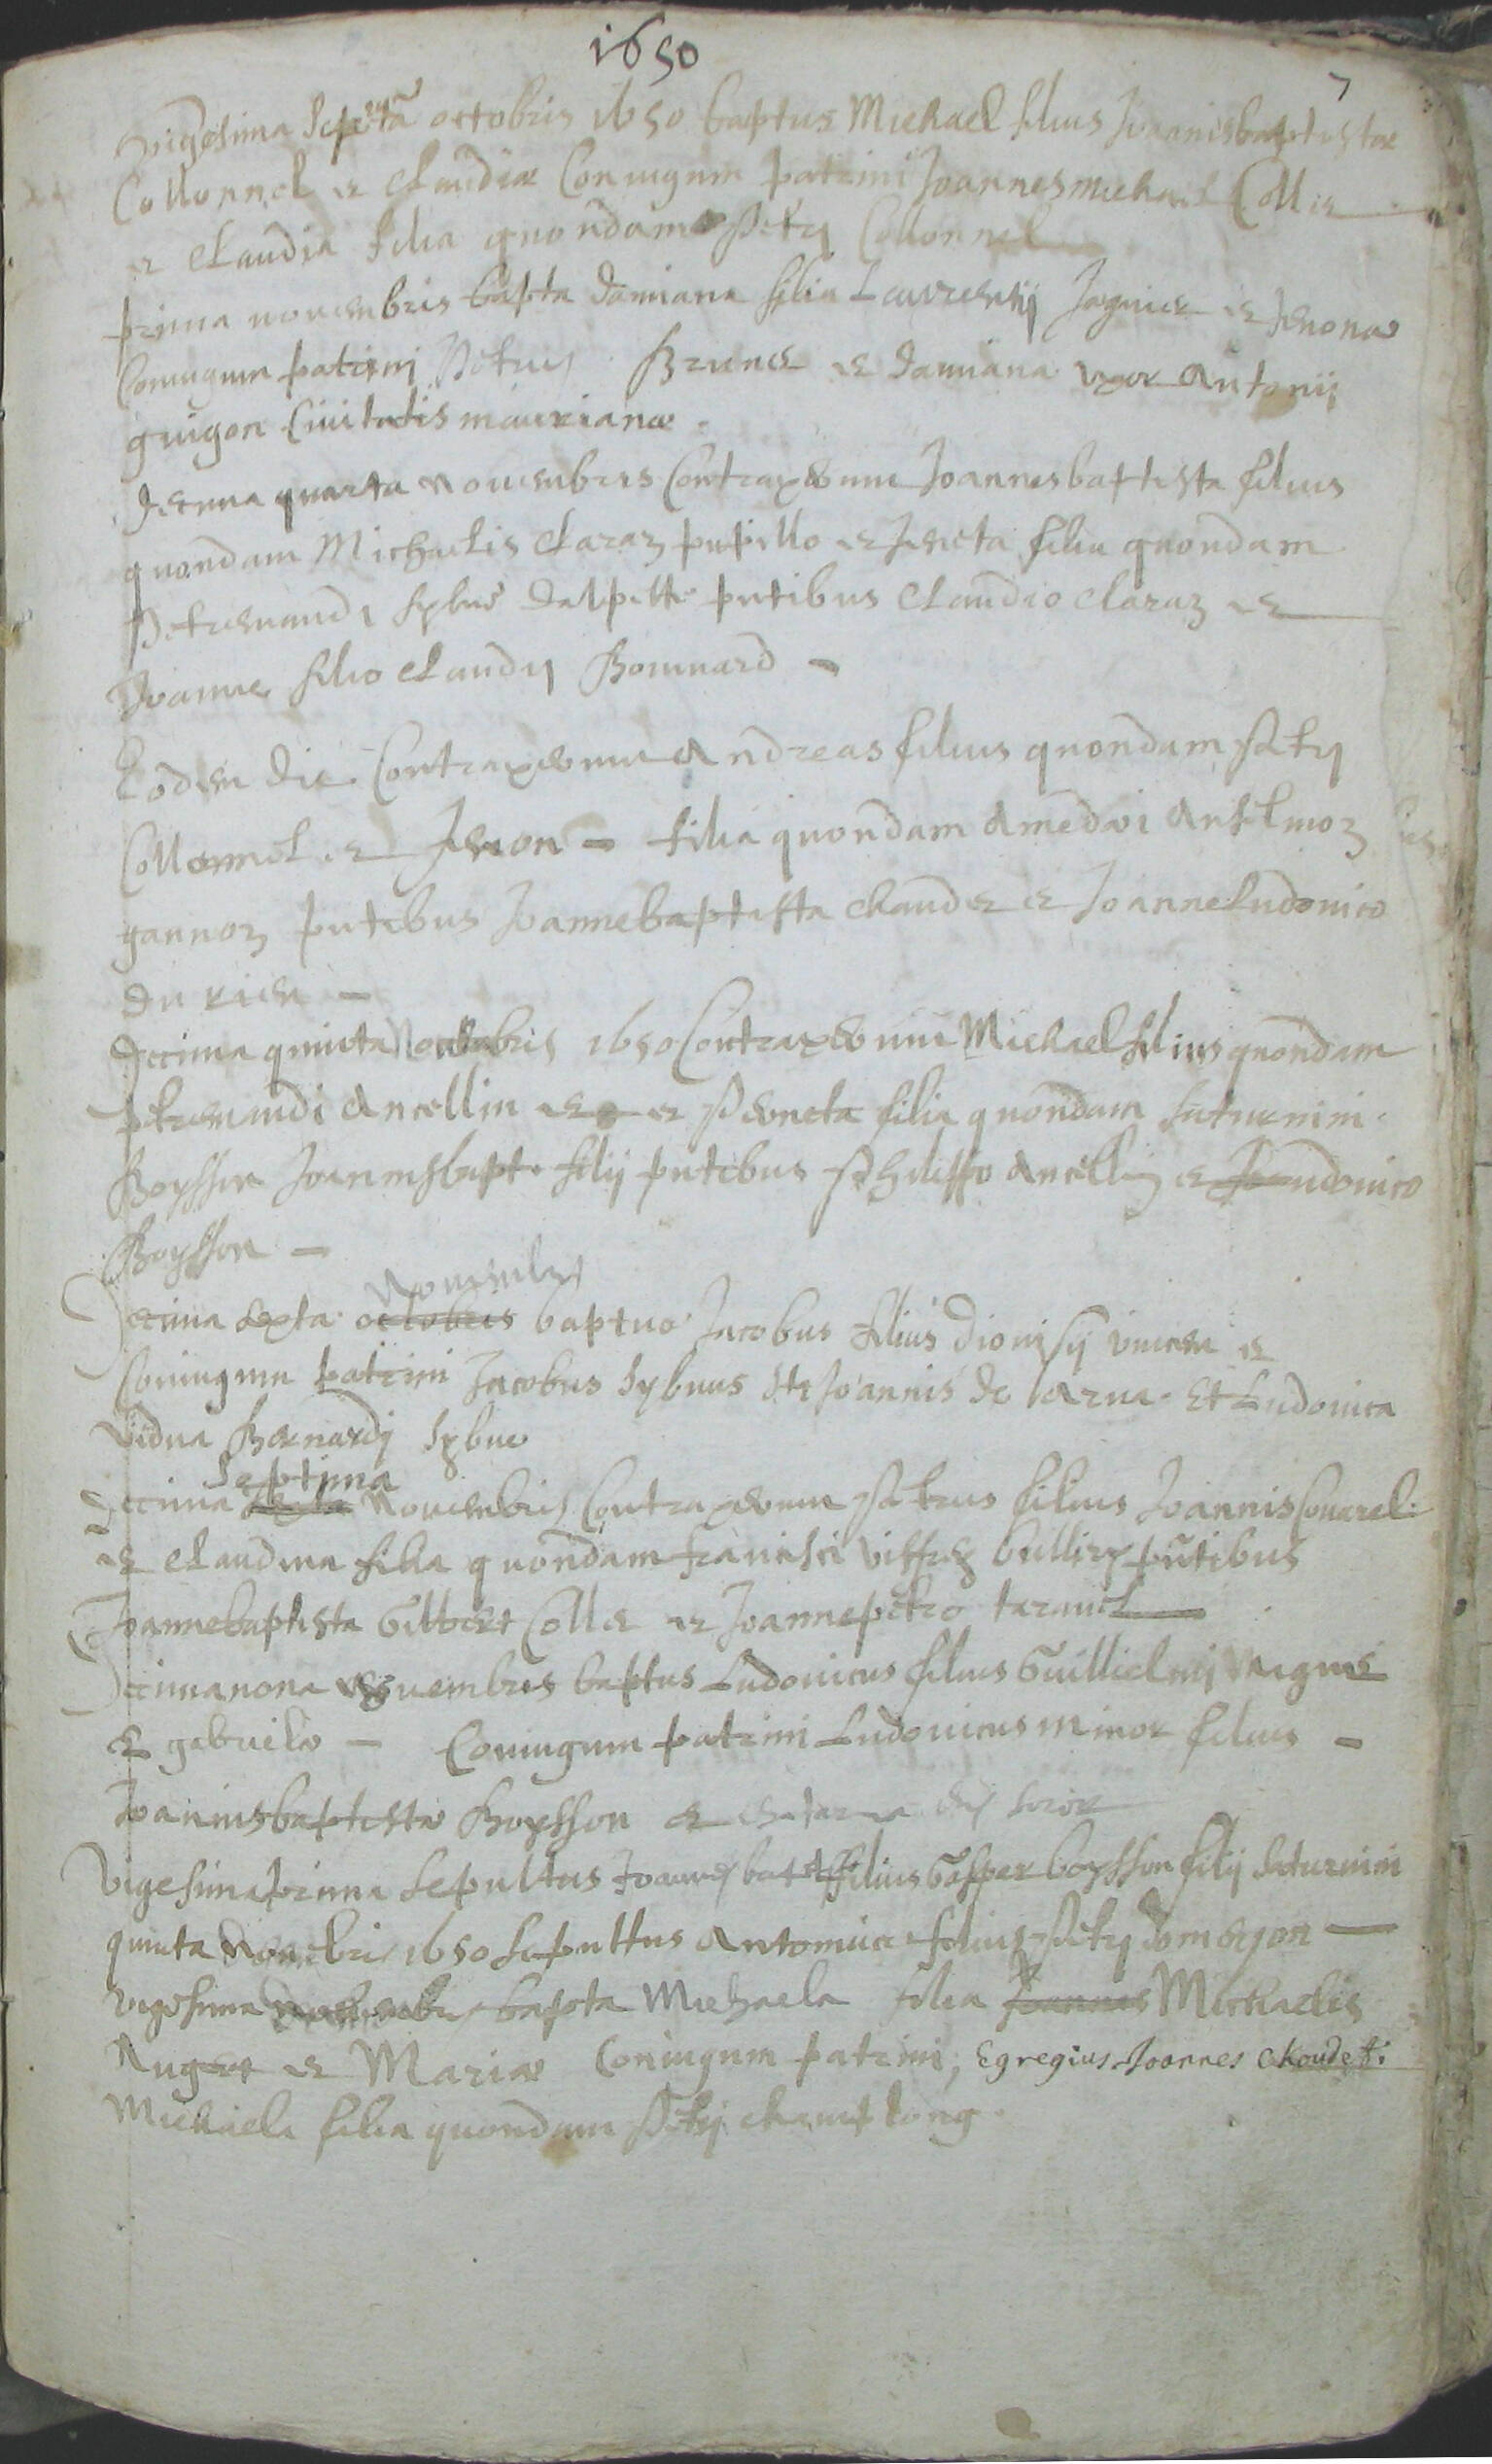 1650
7
vigesima septima octobris 1650 baptus Michael filius Joannisbaptistae
Collonnel et Claudiae Coniugum patrini Joannesmichael Collet
et Claudia filia quondam Petri Collonnel
prima novembris bapta damiana filia Laurentij Jaguier et Jenonae
Coniugum patrini Petrus Brunet et damiana uxor Antonij
guigon Civitatis maurianae.
decima quarta novembris Contraxerunt Joannesbaptista filius
quondam Michaelis Claraz pupillo et filia quondam
Petremandi sybue dalpette pntibus Claudio Claraz et
Joanne filio Claudij Bonnard -
Eodem die Contraxerunt Andreas filius quondam Petri
Collonnel et Jenon - filia quondam Amedaei Anselmoz
gannoz pntibus Joannebaptista Chaudet et Joanneludovico
du rieu -
decima quinta novembris 1650 Contraxerunt Michael filius quondam
ptremandi Ancellin et et filia quondam Saturnini
Boysson Joannisbapte filij pntibus Philippo Ancellin et Ludovico
Boysson -
novembris
decima sexta octobris baptus Jacobus filius Dionisij et
Coniugum patrini Jacobus Sybuus Joannis de larua. Et Ludovica
vidua Bernardj Sybue
septima
decima sexta novembris Contraxerunt Petrus filius Joannis Couarel
et Claudina filia quondam francisci viffrey pntibus
Joannebaptista Gilbert Collet et Joannepetro taravel
decimanona novembris baptus Ludovicus filius Guillielmj
et gabrielae - Coniugum patrini Ludovicus minor filius -
Joannisbaptistae Boysson et eius soror
vigesimaprima sepultus Joannes baptista filius Gasper boysson filij Saturnini
quinta 1650 sepultus Antonius filius Petri domeyon
vigesima bapta Michaela filia Joannes Michaelis
Augert et Mariae Coniugum patrini, Egregius Joannes Choudet
Michaela filia quondam Petri champlong.